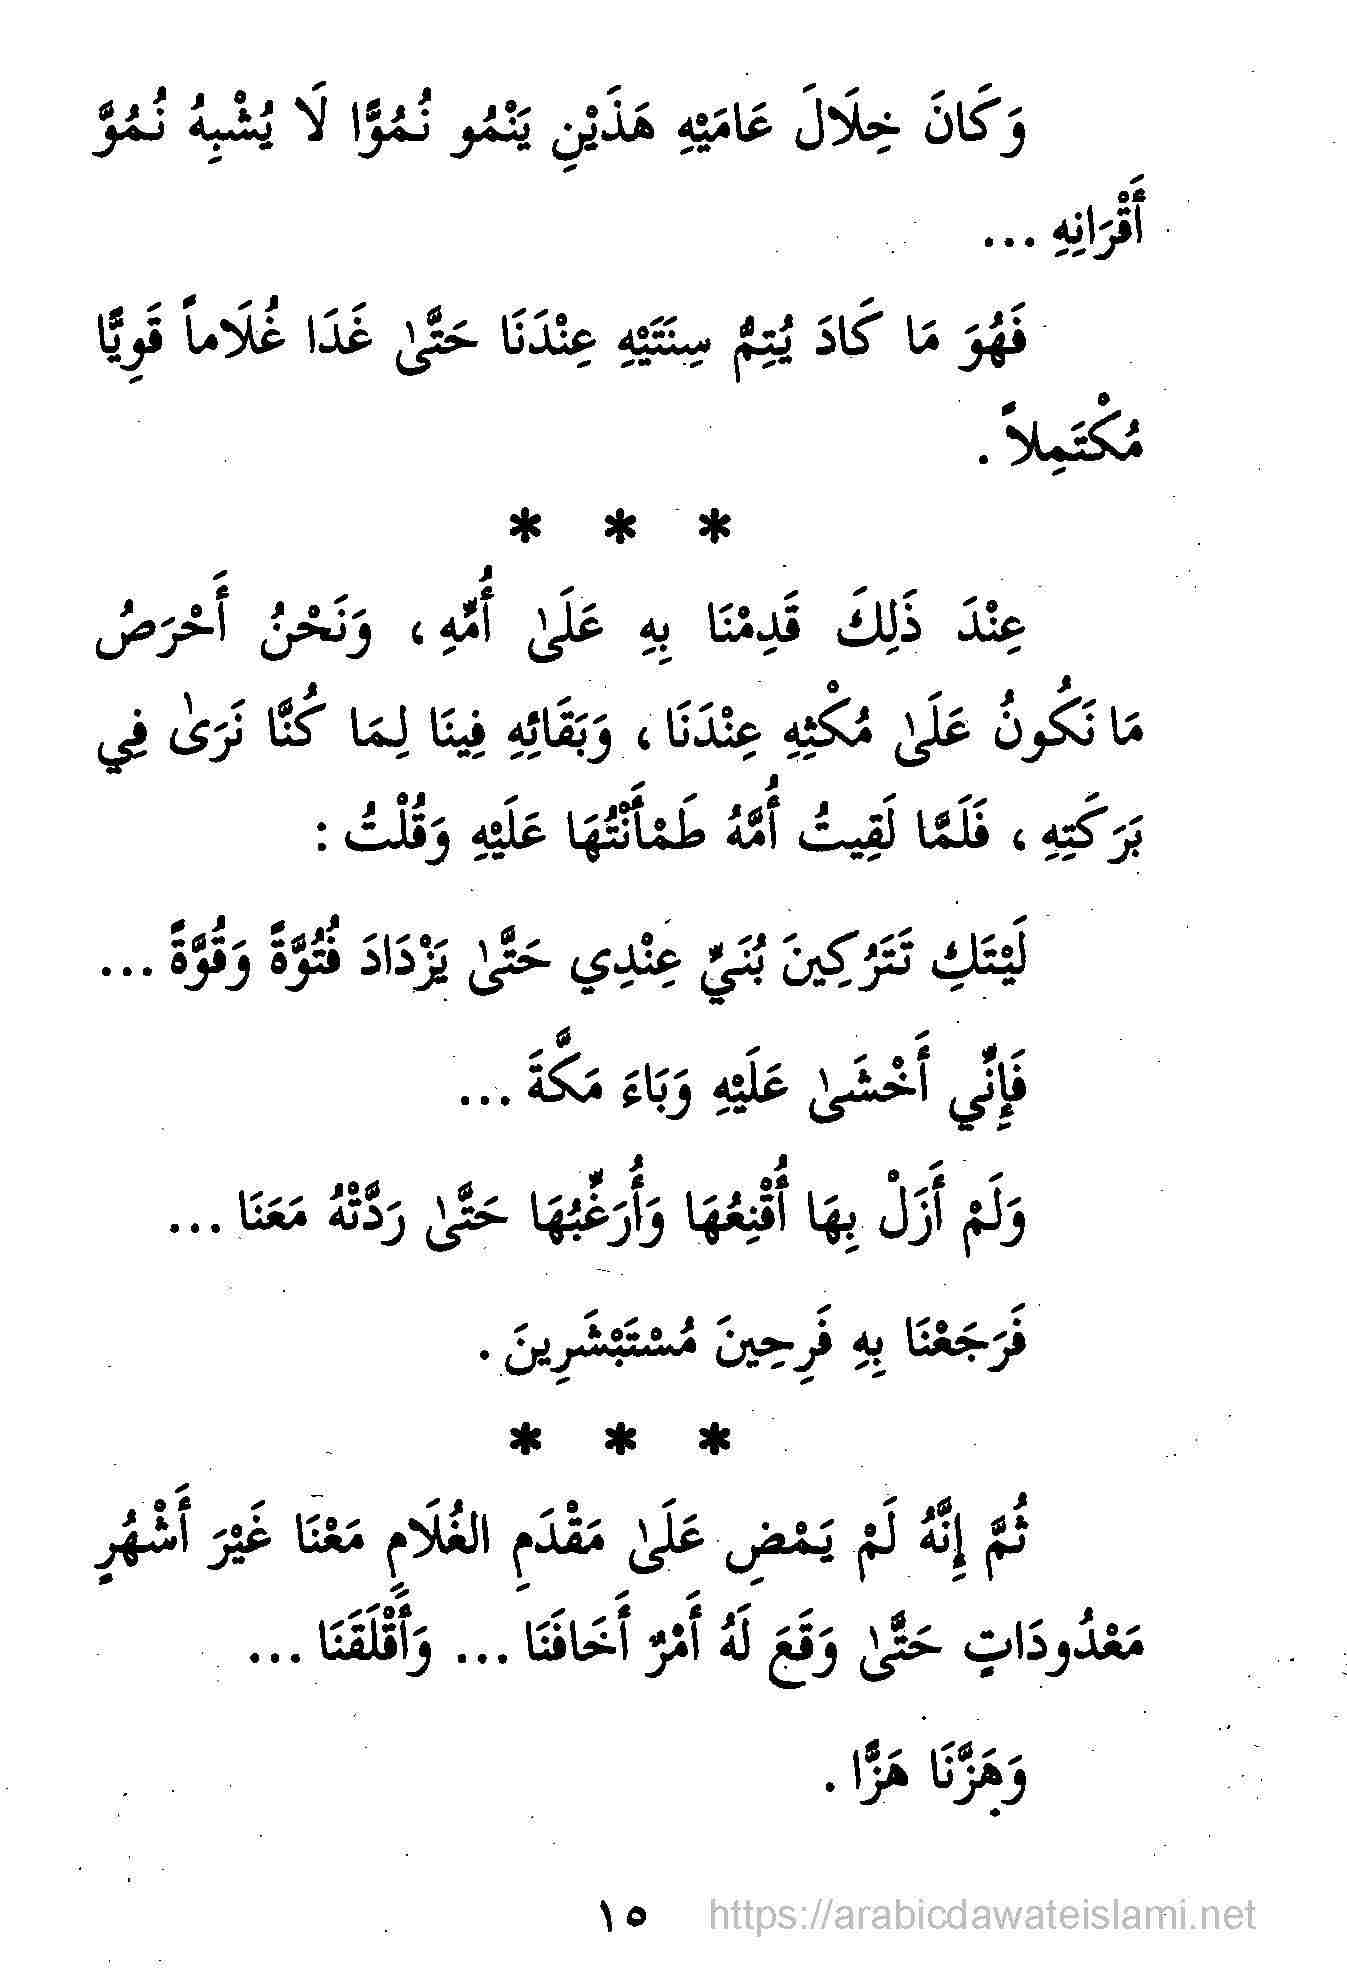 وَكَانَ خِلَالَ عَامَيْهِ هَذَيْنِ يَنْمُو نُمُوًّا لَا يُشْبِهُ نُمُوَّ
أَقْرَانِهِ ...
فَهُوَ مَا كَادَ يُتِمُّ سِنَتَيْهِ عِنْدَنَا حَتَّىٰ غَدَا غُلَاماً قَوِيًّا
مُكْتَمِلاً .
* * *
عِنْدَ ذَلِكَ قَدِمْنَا بِهِ عَلَىٰ أُمِّهِ ، وَنَحْنُ أَحْرَصُ
مَا نَكُونُ عَلَىٰ مُكْثِهِ عِنْدَنَا ، وَبَقَائِهِ فِينَا لِمَا كُنَّا نَرَىٰ فِي
بَرَكَتِهِ ، فَلَمَّا لَقِيتُ أُمَّهُ طَمْأَنْتُهَا عَلَيْهِ وَقُلْتُ :
لَيْتَكِ تَتَرُكِينَ بُنَيِّ عِنْدِي حَتَّىٰ يَزْدَادَ فُتُوَّةً وَقُوَّةً ...
فَإِنِّي أَخْشَىٰ عَلَيْهِ وَبَاءَ مَكَّةَ ...
وَلَمْ أَزَلْ بِهَا أُقْنِعُهَا وَأُرَغِّبُهَا حَتَّىٰ رَدَّتْهُ مَعَنَا ...
فَرَجَعْنَا بِهِ فَرِحِينَ مُسْتَبْشَرِينَ .
* * *
ثُمَّ إِنَّهُ لَمْ يَمْضِ عَلَىٰ مَقْدَمِ الغُلَامِ مَعْنَا غَيْرَ أَشْهُرٍ
مَعْدُودَاتٍ حَتَّىٰ وَقَعَ لَهُ أَمْرٌ أَخَافَنَا ... وَأَقْلَقَنَا ...
وَهَزَّنَا هَزًّا .
١٥
https://arabicdawateislami.net